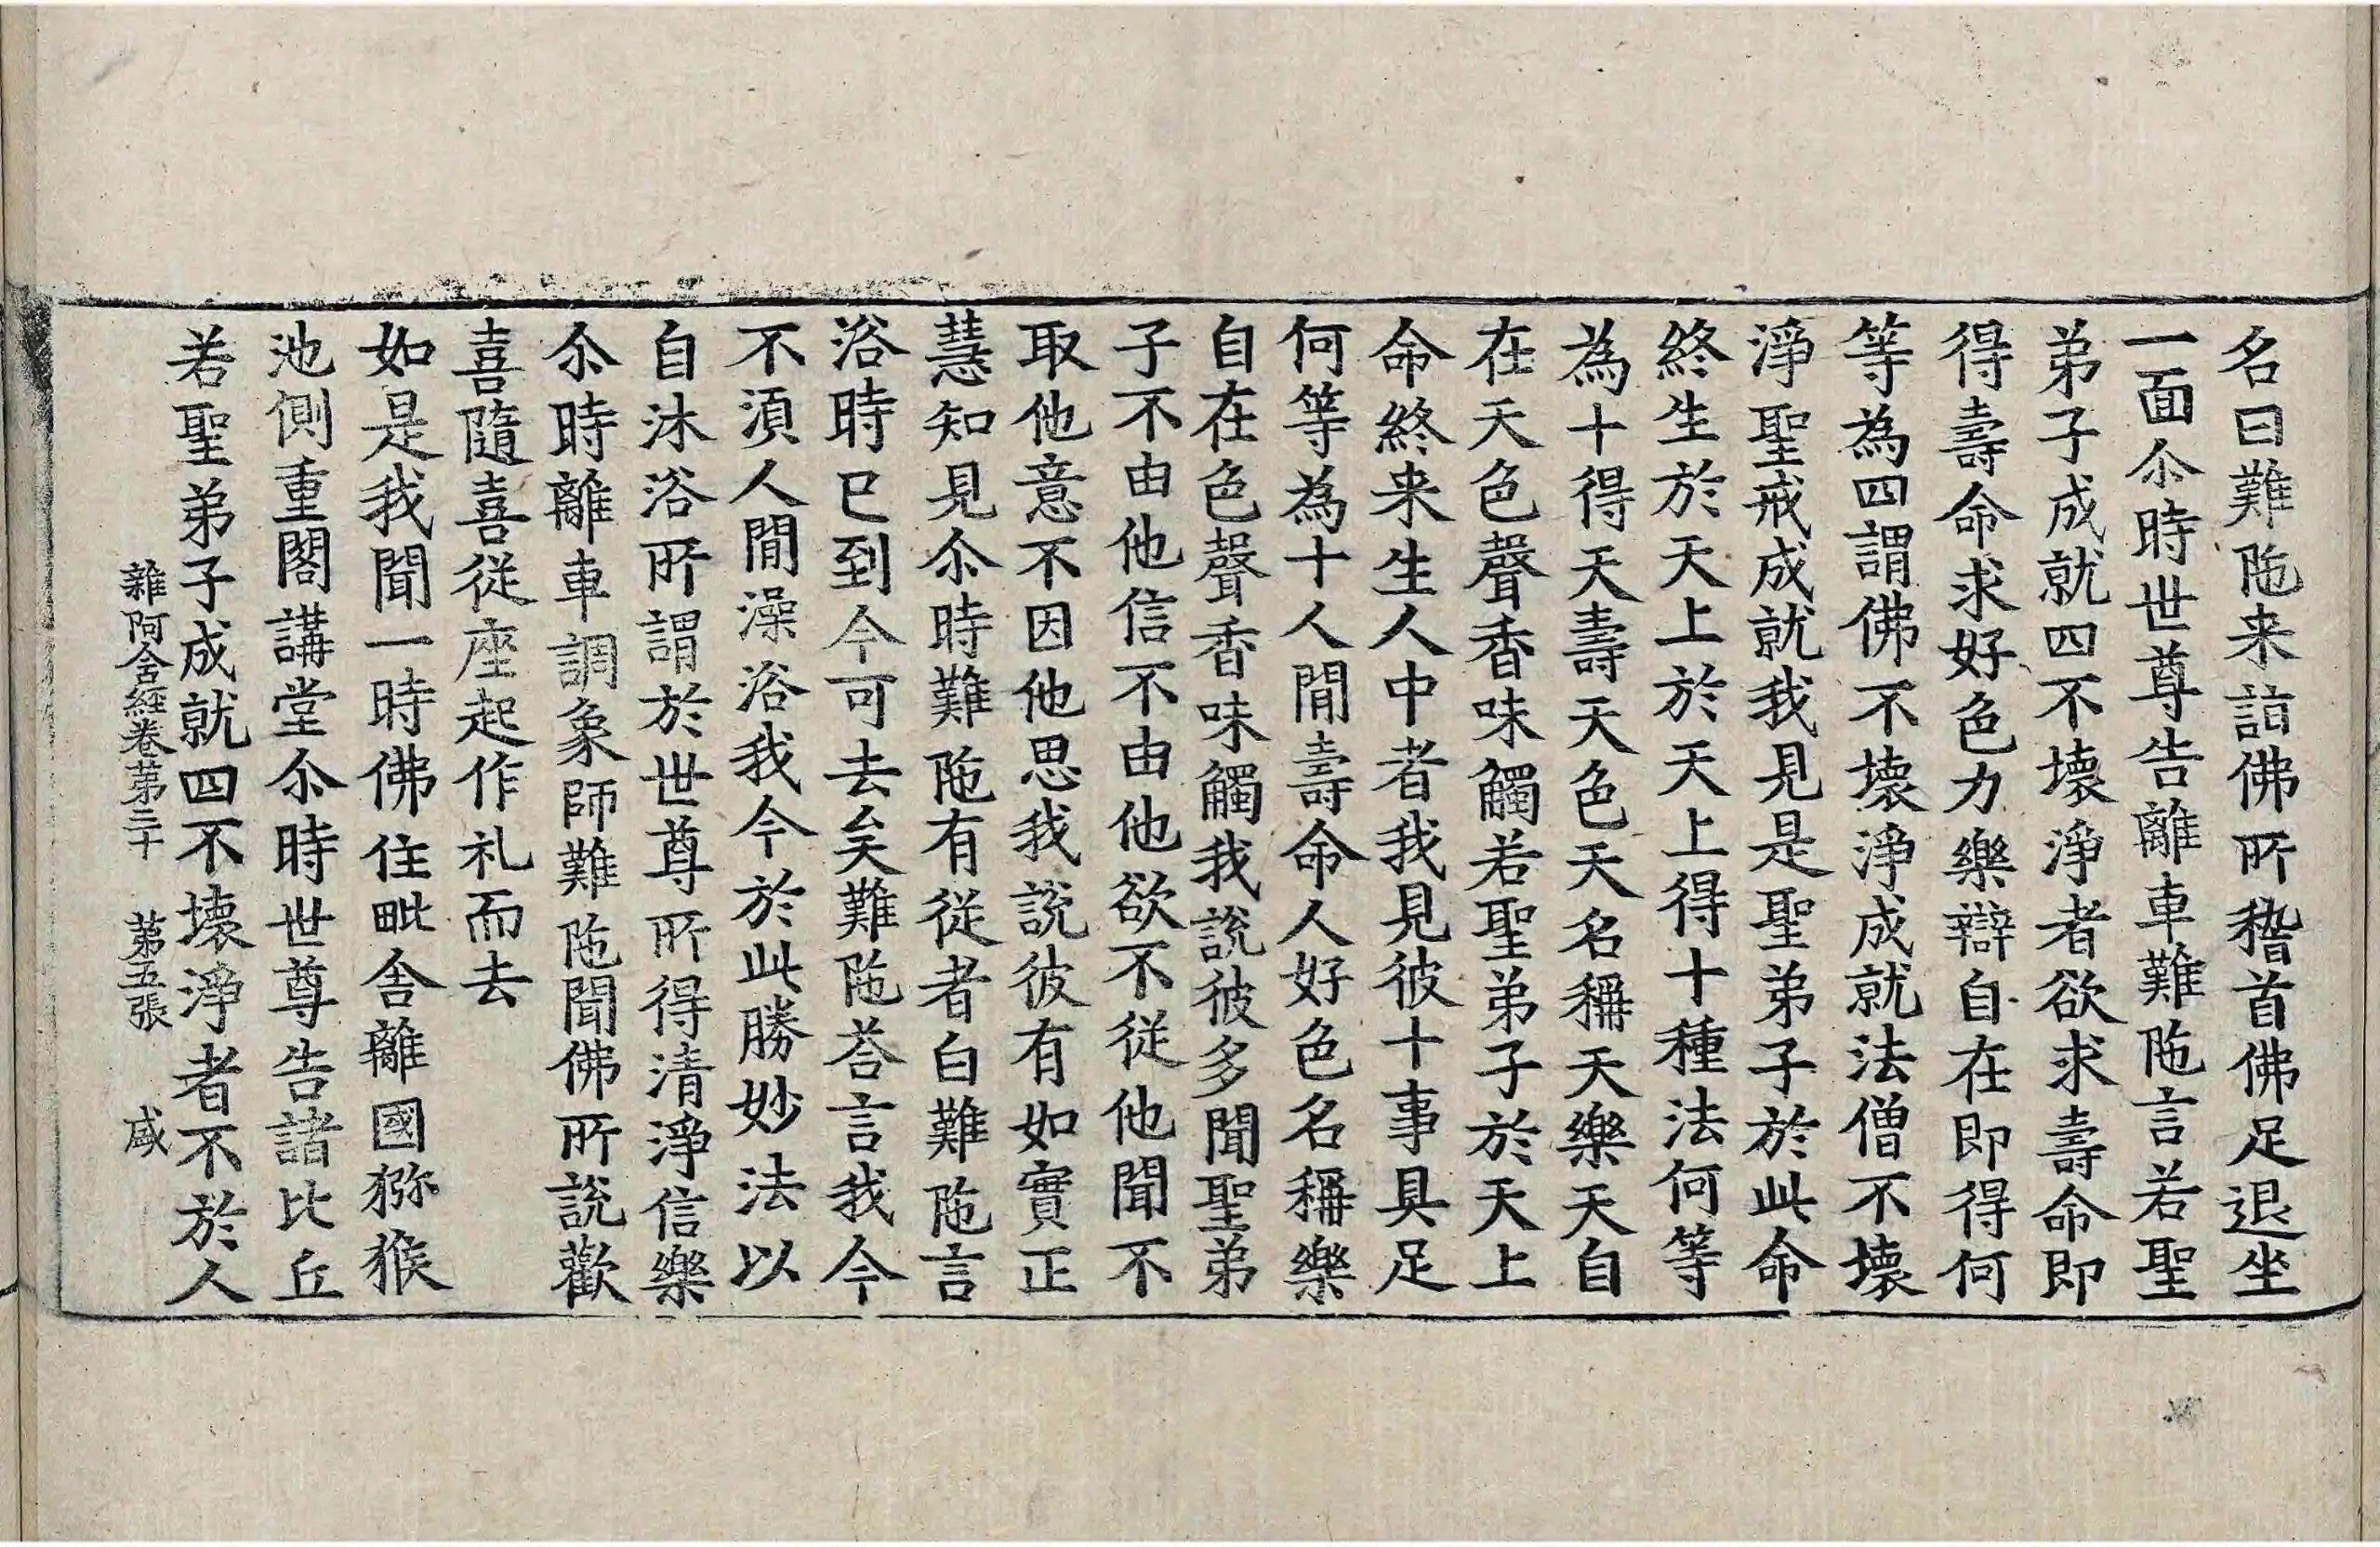 名曰難陁来詣佛所稽首佛足退坐
一面尒時世尊告離車難陁言若聖
弟子成就四不壊淨者欲求壽命即
得壽命求好色力樂辯自在即得何
等為四謂佛不壊淨成就法僧不壊
淨聖戒成就我見是聖弟子於此命
終生於天上於天上得十種法何等
為十得天壽天色天名稱天樂天自
在天色聲香味觸若聖弟子於天上
命終来生人中者我見彼十事具足
何等為十人閒壽命人好色名稱樂
自在色聲香味觸我說彼多聞聖弟
子不由他信不由他欲不從他聞不
取他意不因他思我說彼有如實正
慧知見尒時難陁有從者白難陁言
浴時已到今可去矣難陁荅言我今
不湏人閒澡浴我今於此勝妙法以
自沐浴所謂於世尊所得清淨信樂
尒時離車調象師難陁聞佛所說歡
喜隨喜從座起作礼而去
如是我聞一時佛住毗舍離國獼猴
池側重閣講堂尒時世尊告諸比丘
若聖弟子成就四不壊淨者不於人
雜阿含經卷第三十　第五張　咸